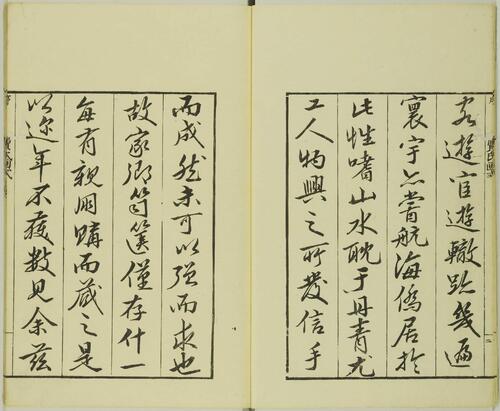 客遊宦遊轍跡幾遍
寰宇亦嘗航海僑居於
此性嗜山水耽于丹青尤
工人物興之所發信手
而成然未可以強而求也
故家鄉笥篋僅存什一
每有親朋購而藏之是
以迩年不獲數見余茲